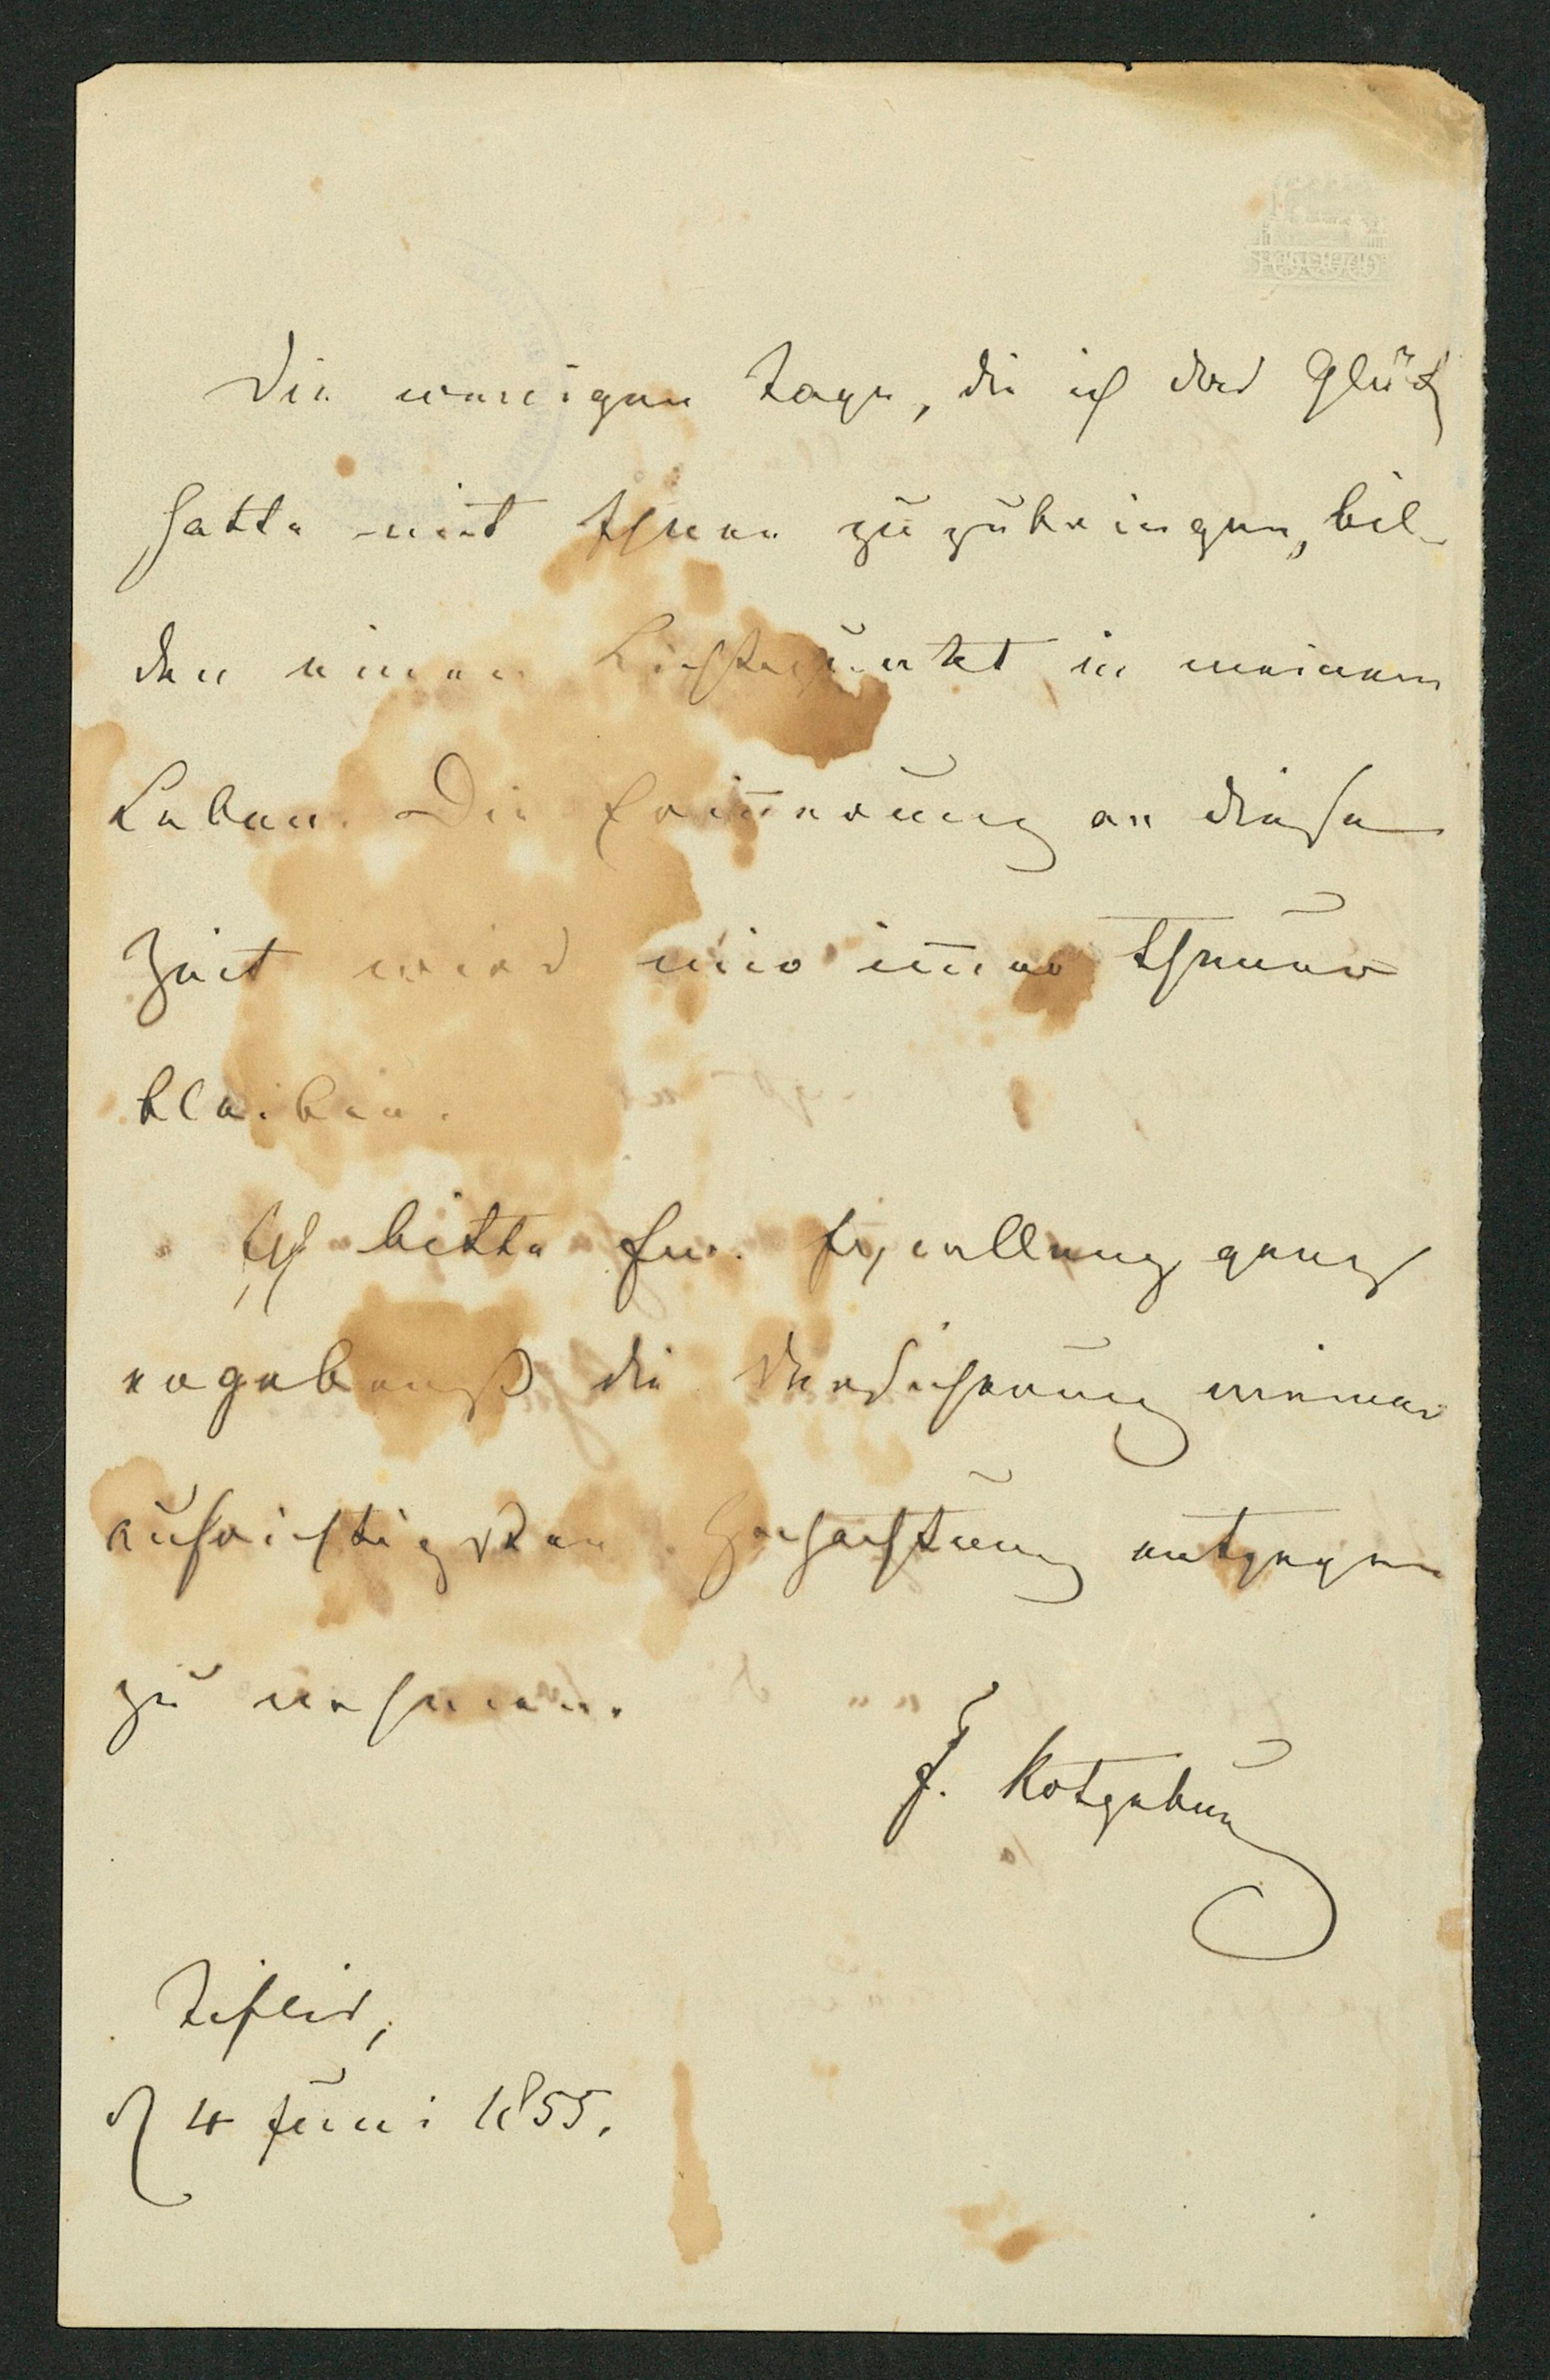 Die wenigen Tage, die ich das Glück
hatte mit Ihnen zuzubringen, bil-
den einen Lichtpunkt in meinem
Leben. Die Erin̄erung an diese
Zeit wird mir im̄er theuer
bleiben.
Ich bitte Eure Excellenz ganz
ergebenst die Versicherung meiner
aufrichtigsten Hochachtung entgegen
zu nehmen.
F. Kotzebue
Tiflis,
d 4 Juni 1855.